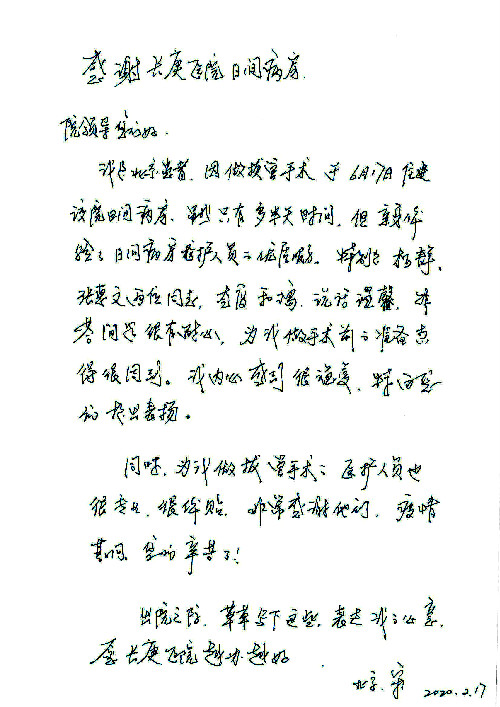 感谢长庚医院日间病房
院领导您们好.
我是北京患者,因做拔管手术于6月17日住进
该院日间病房,虽然只有多半天时间,但亲身体
验了日间病房医护人员的优质服务。特别是 群,
张 文两位同志,态度和蔼,说话温馨,解
答问题很有耐心,为我做手术前的准备点
得很周到。我内心感到很温暖,特
的提出表扬。
同时,为我做拔管手术的医护人员也
很专业,很体贴,非常感谢他们,疫情
其间,您们辛苦了!
出院之际,草草写下这些,表达我的心意,
愿长庚医院越办越好
北京.宋 2020.2.17